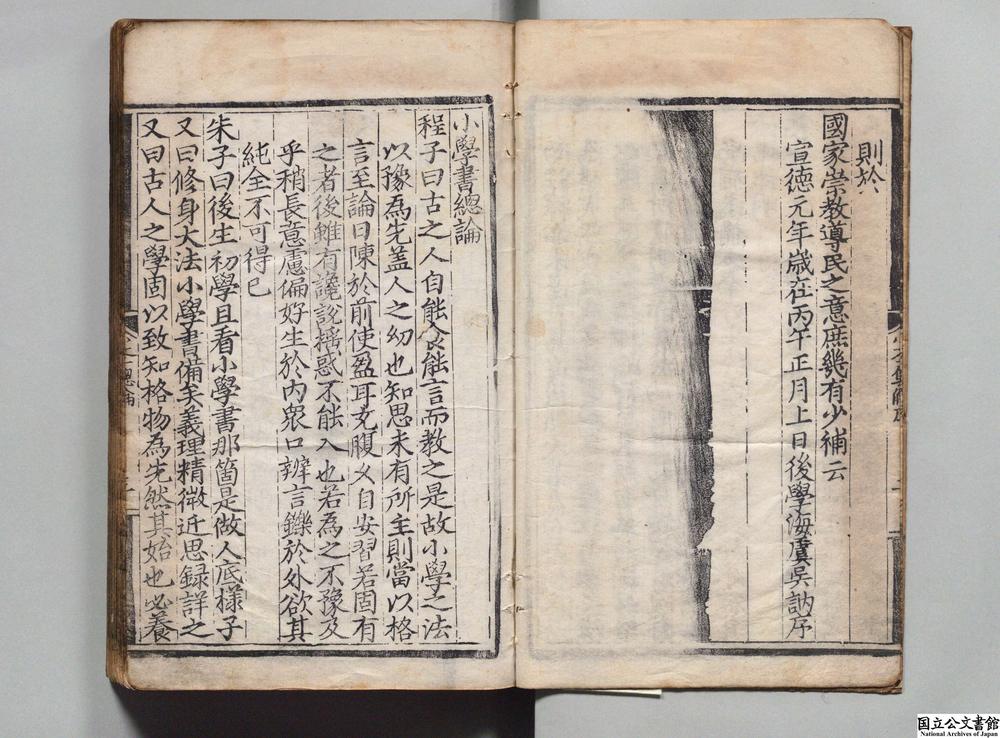 則於
國家崇教導民之意庶幾有少補云
宣德元年歲在丙午正月上日後學海虞吳訥序
小學書總論
程子曰古之人自能食能言而教之是故小學之法
以豫為先盖人之幼也知思未有所主則當以格
言至論日陳於前使盈耳充腹乆自安習若固有
之者後雖有讒說揺惑不能入也若為之不豫及
乎稍長意慮偏好生於內衆口辨言鑠於外欲其
純全不可得已
朱子曰後生初學且看小學書那箇是做人底樣子
又曰修身大法小學書備矣義理精微近思録詳之
又曰古人之學固以致知格物為先然其始也必養
国立公文書館
National Archives of Japan